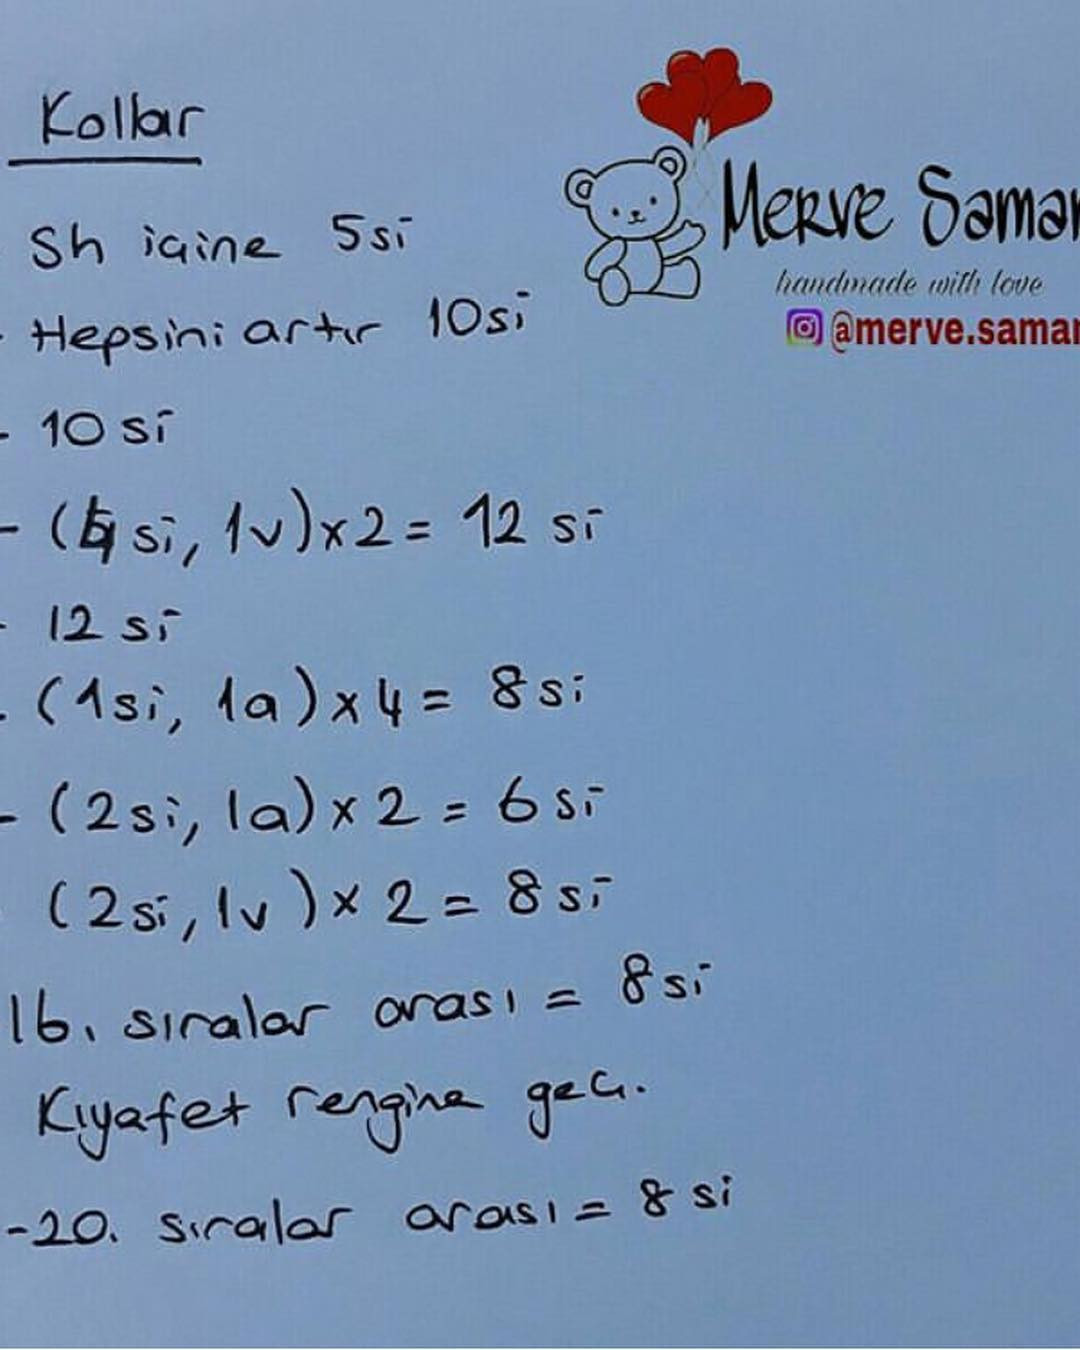 Kollar
Merve Samar
handmade with love
@merve.samar
Sh içine 5si
- Hepsini artır 10si
- 10 si
- (4 si, 1v)x2 = 12 si
- 12 si
- (1si, 1a)x4 = 8si
- (2si, 1a)x2 = 6si
(2si, 1v)x2 = 8si
16. sıralar arası = 8si
Kıyafet rengine geç.
-20. sıralar arası = 8 si